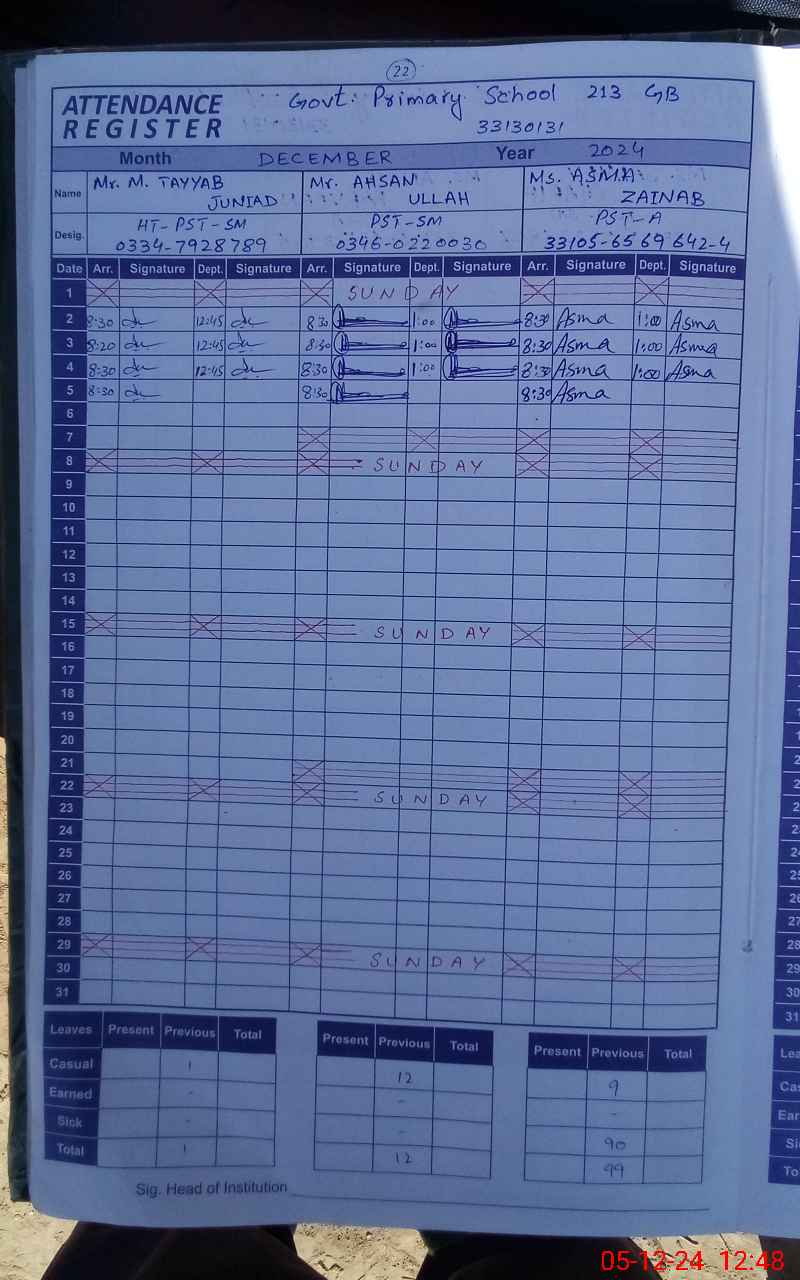 22
ATTENDANCE REGISTER
Govt. Primary School 213 GB
33130131
Month DECEMBER Year 2024
Name Mr. M. TAYYAB JUNIAD Mr. AHSAN ULLAH Ms. ASMA ZAINAB
Desig. HT-PST-SM PST-SM PST-A
0334-7928789 0346-0220030 33105-6569642-4
Date Arr. Signature Dept. Signature Arr. Signature Dept. Signature Arr. Signature Dept. Signature
1 SUNDAY
2 8:30 12:45 8:30 1:00 8:30 Asma 1:00 Asma
3 8:20 12:45 8:30 1:00 8:30 Asma 1:00 Asma
4 8:30 12:45 8:30 1:00 8:30 Asma 1:00 Asma
5 8:30 8:30 8:30 Asma
6
7
8 SUNDAY
9
10
11
12
13
14
15 SUNDAY
16
17
18
19
20
21
22 SUNDAY
23
24
25
26
27
28
29 SUNDAY
30
31
Leaves Present Previous Total Present Previous Total Present Previous Total
Casual 1 12 9
Earned - - -
Sick - - 90
Total 1 12 99
Sig. Head of Institution
05-12-24 12:48